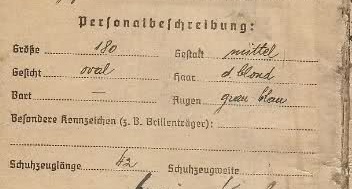 Personalbeschreibung:
Größe 180 Gestalt mittel
Gesicht oval Haar d. blond
Bart — Augen grau blau
Besondere Kennzeichen (z. B. Brillenträger):
Schuhzeuglänge 42 Schuhzeugweite